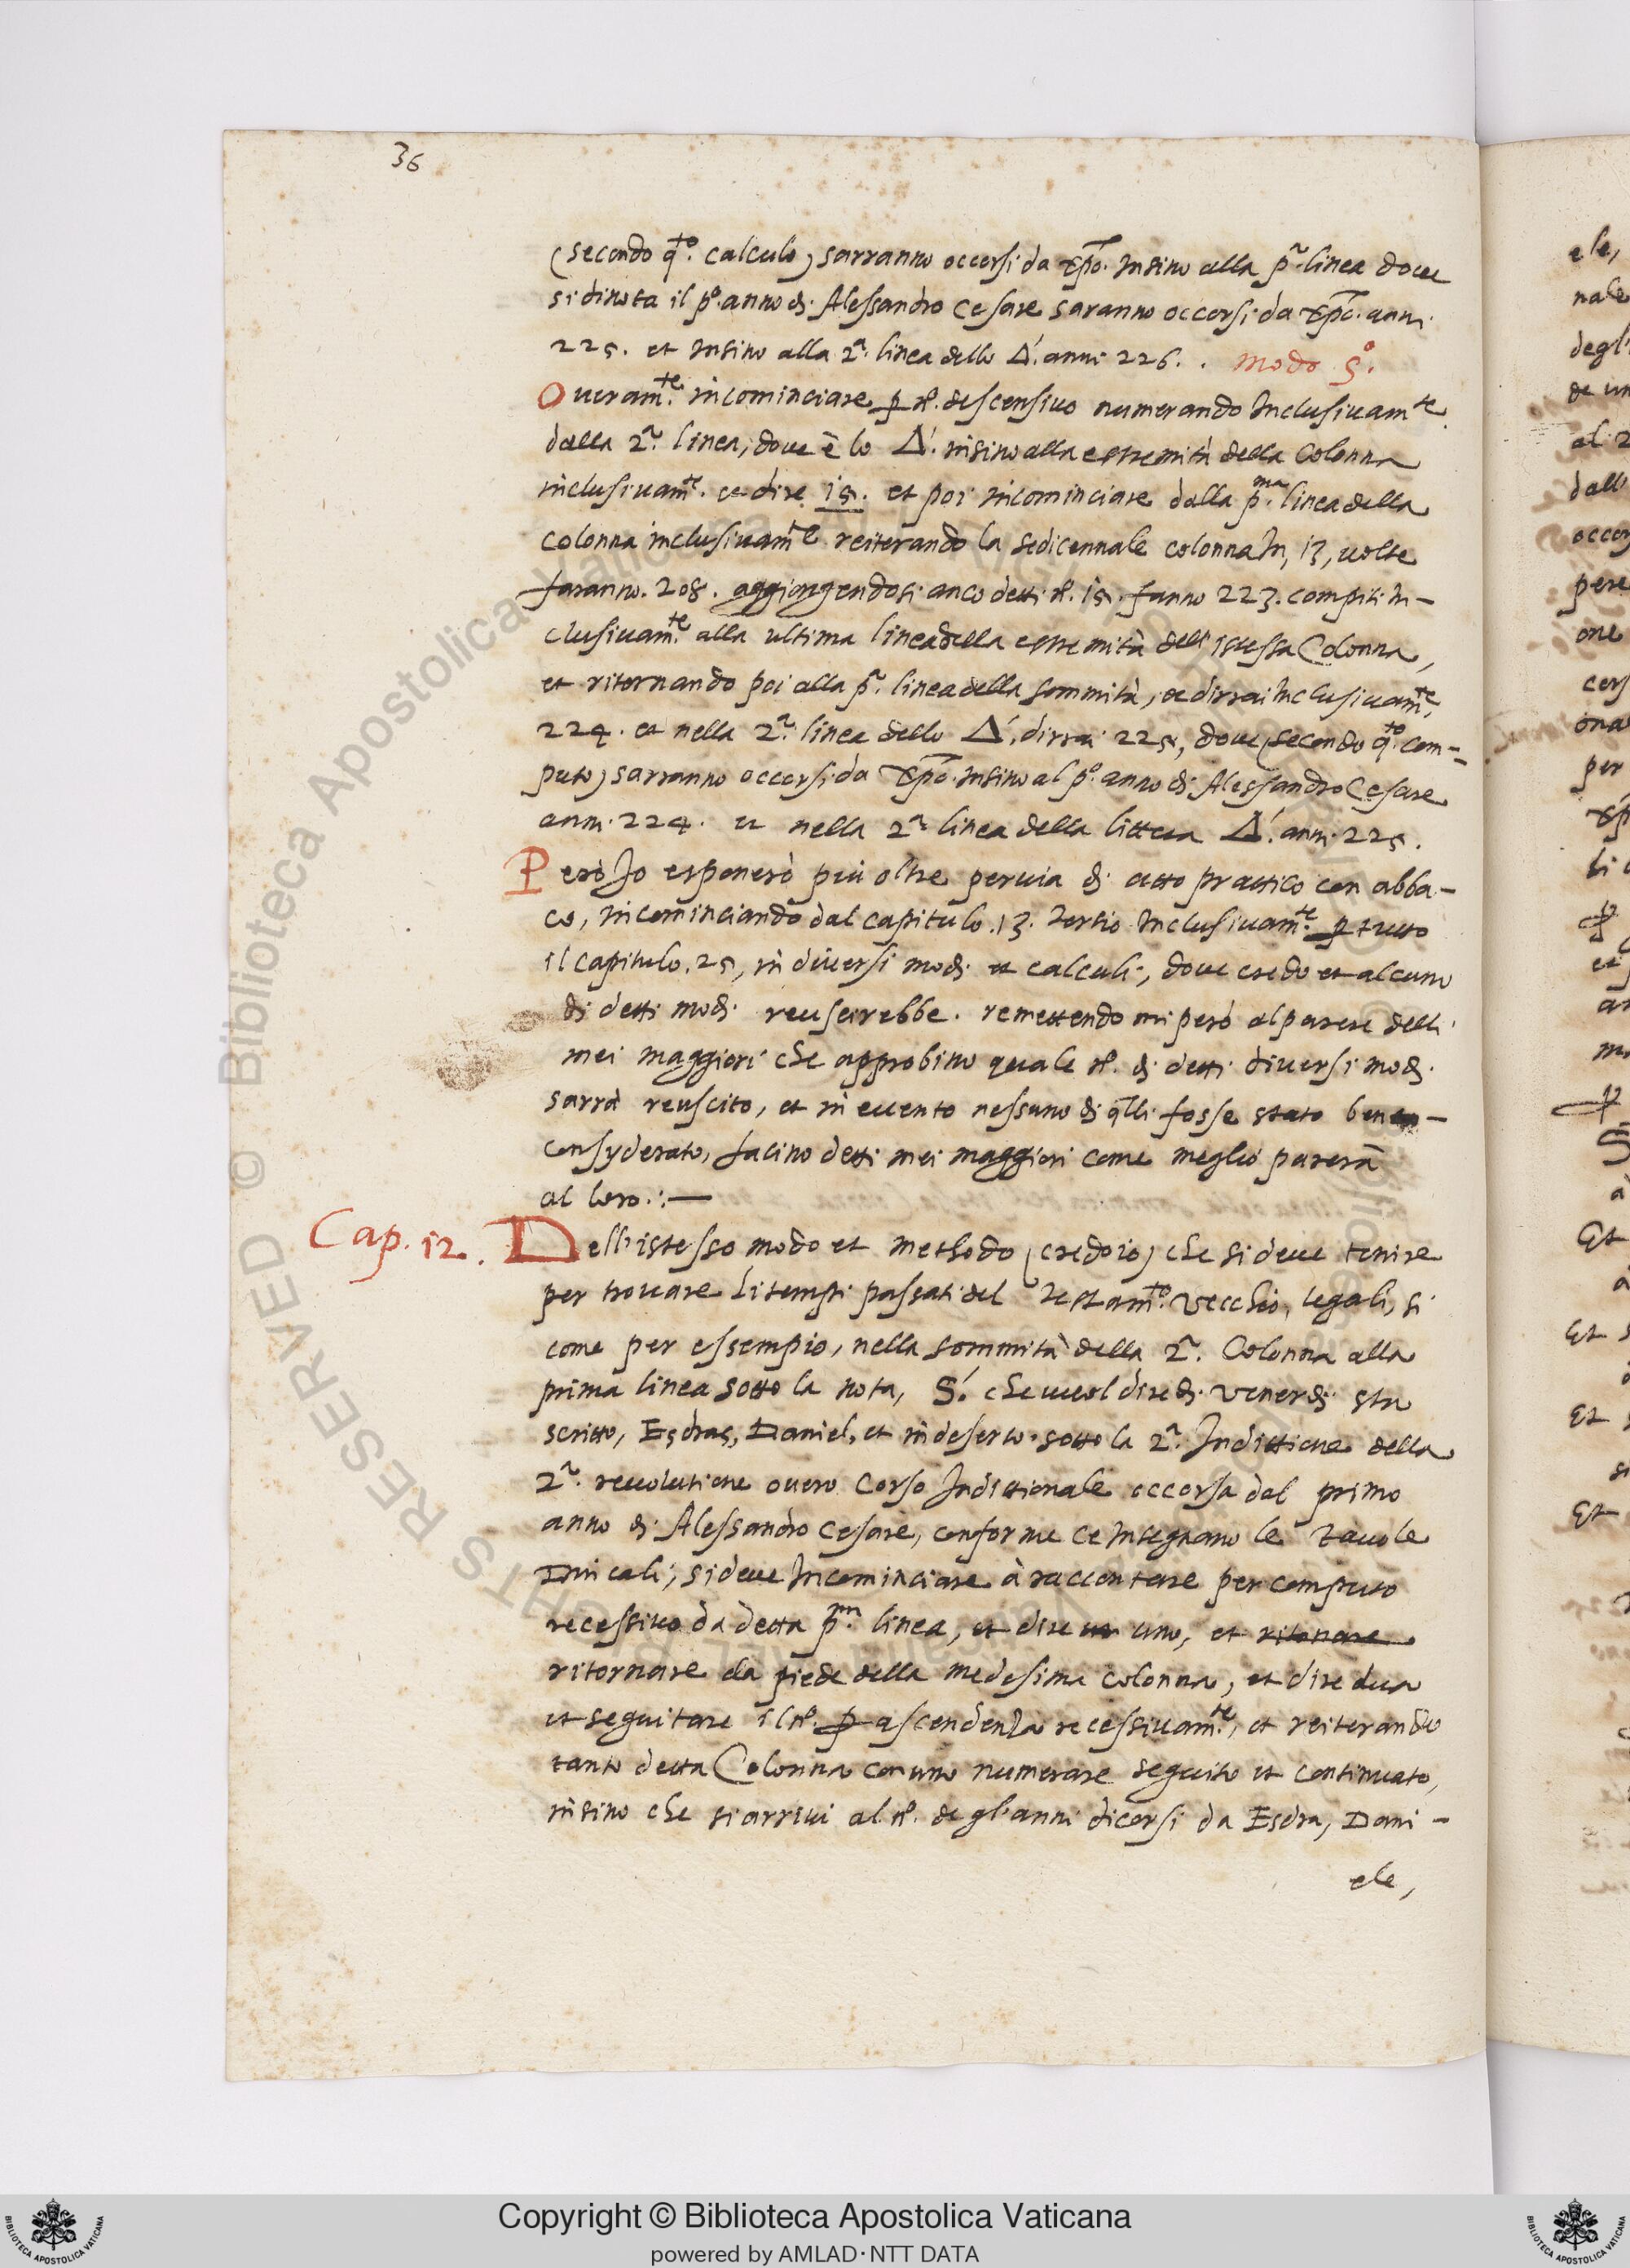 36
(secondo q.to calculo) sarranno occorsi da xp̄o. insino alla p.a linea doue
si dinota il p.o anno di Alessandro Cesare saranno occorsi da xp̄o. anni
225. et insino alla 2.a linea dello Δ́. anni 226. . modo 5.o
Oueram.te incominciare p n.o descensiuo numerando Inclusiuam.te
dalla 2.a linea, doue è lo Δ́. insino alla estremità della Colonna
inclusiuam.te et dire 15. et poi incominciare dalla p.ma linea della
colonna inclusiuam.te reiterando la sedicennale colonna In, 13, uolte
faranno. 208. aggiongendosi anco detti n.o 15. fanno 223. compiti in-
clusiuam.te alla ultima linea della estremità dell'istessa Colonna,
et ritornando poi alla p.a linea della sommità, et dirrai Inclusiuam.te
224. et nella 2.a linea dello Δ́. dirrai 225, doue (secondo q.to com-
puto) sarranno occorsi da xp̄o. insino al p.o anno di Alessandro Cesare
anni 224. et nella 2.a linea della littera Δ́. anni 225.
Però Io esponerò più oltre per uia di atto prattico con abba-
co, incominciando dal capitulo .13. tertio Inclusiuam.te p tutto
il capitulo. 25, in diuersi modi et calculi, doue credo et alcuno
di detti modi reusirebbe. remettendomi però al parere delli
mei maggiori che approbino quale n.o di detti diuersi modi
sarrà reuscito, et in euento nessuno di q̄lli fosse stato ben
consyderato, facino detti mei maggiori come meglio parerà
al loro.:—
Cap. 12. Dell'istesso modo et methodo (credo io) che si deue tenire
per trouare li tempi passati del Testam.to Vecchio, legali, si
come per essempio, nella sommità della 2.a Colonna alla
prima linea sotto la nota, S. che uuol dire di Venerdi sta
scritto, Esdras, Daniel, et in deserto sotto la 2.a Indittione della
2.a reuolutione ouero Corso Indittionale occorsa dal primo
anno di Alessandro Cesare, conforme ce Insegnano le Tauole
Dnicali, si deue Incominciare à raccontare per computo
recessiuo da detta p.ma linea, et dire uno, et ritornare
ritornare da piede della medesima colonna, et dire dua
et seguitare il n.o p ascendenza recessiuam.te, et reiterando
tanto detta Colonna con uno numerare seguito et continuato,
insino che si arriui al n.o de gl'anni dicorsi da Esdra, Dani-
ele,
ele,
nale
degl'
de un
al 2
dall
pere
one
per
Et
Et
Et
Et
Copyright © Biblioteca Apostolica Vaticana
powered by AMLAD·NTT DATA